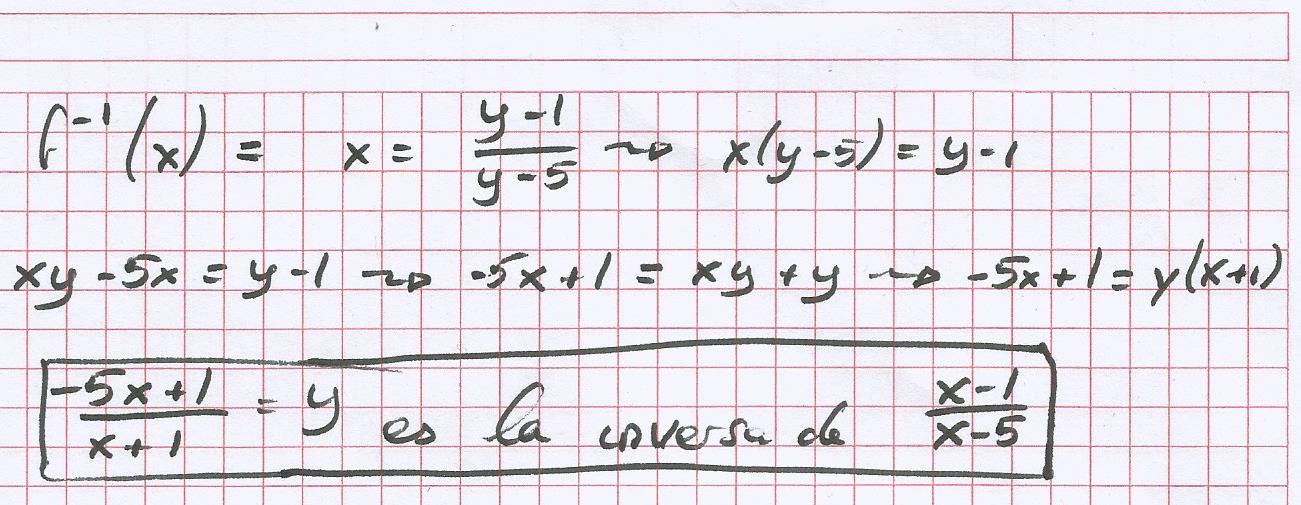 f⁻¹(x) = x = (y-1)/(y-5) ⇝ x(y-5) = y-1
xy - 5x = y - 1 ⇝ -5x + 1 = xy + y ⇝ -5x + 1 = y(x+1)
(-5x+1)/(x+1) = y es la inversa de (x-1)/(x-5)